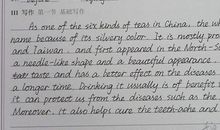 III 写作 第一节 基础写作
As one of the six kinds of teas in China, the wh
name because of its silvery color. It is mostly pro
and Taiwan, and first appeared in the North-S
a needle-like shape and a beautiful appearance.
taste and has a better effect on the diseases
a longer time. Drinking it usually is of benefit
it can protect us from the diseases such as the
Moreover, it also helps cure the teeth-ache an